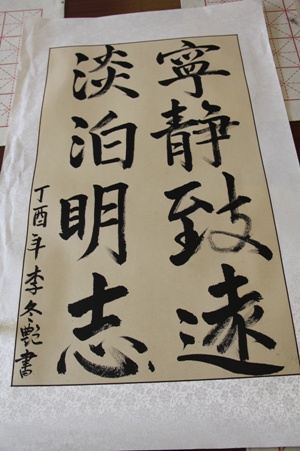 寧靜致遠
淡泊明志
丁酉年李冬艷書